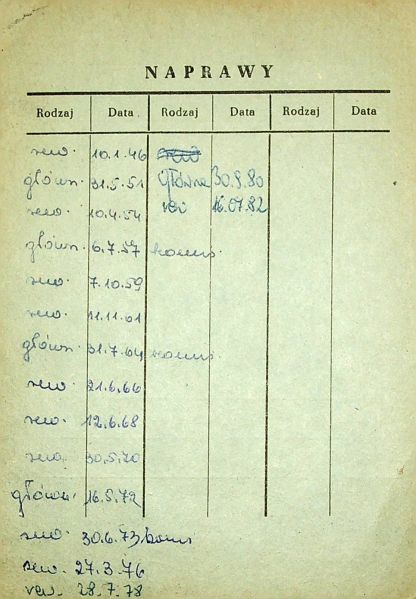 NAPRAWY
Rodzaj Data Rodzaj Data Rodzaj Data
rew. 10.1.46
główn. 31.5.51 główna 30.9.80
rew. 10.4.54 rew 16.07.82
główn. 6.7.57 koms.
rew. 7.10.59
rew. 11.11.61
główn. 31.7.64 koms.
rew. 21.6.66
rew. 12.6.68
rew. 30.5.70
główn. 16.5.72
rew. 30.6.73 koms
rew. 27.3.76
rew. 28.7.78